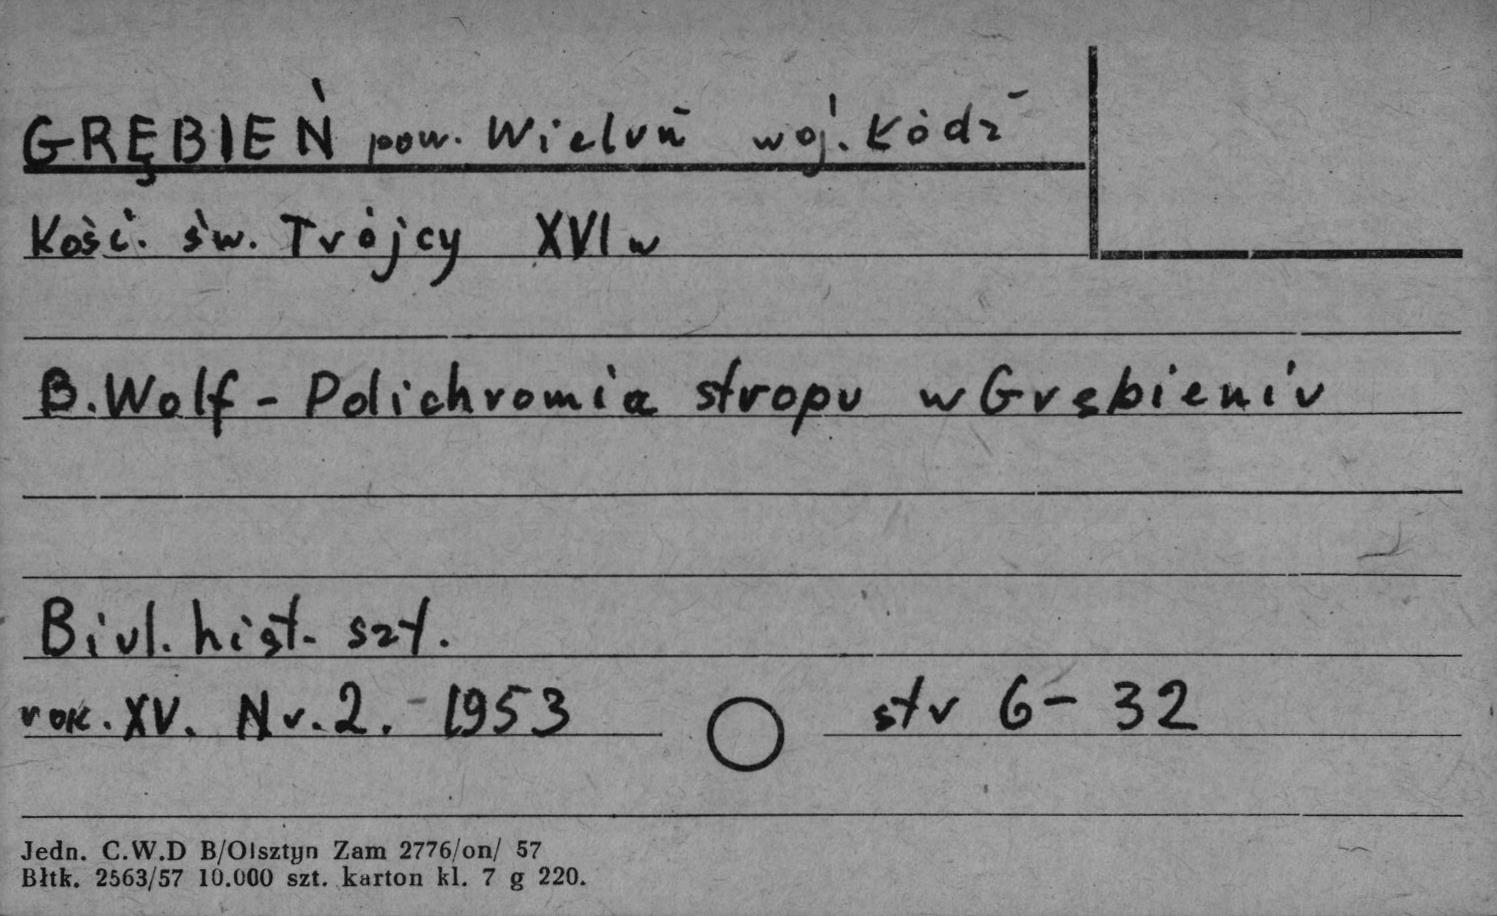 GRĘBIEŃ pow. Wieluń woj. Łódź
Kość. św. Trójcy XVI w
B. Wolf - Polichromia stropu w Grębieniu
Biul. hist. szt.
rok. XV. Nr. 2. - 1953 str 6 - 32
Jedn. C.W.D B/Olsztyn Zam 2776/on/ 57
Błtk. 2563/57 10.000 szt. karton kl. 7 g 220.